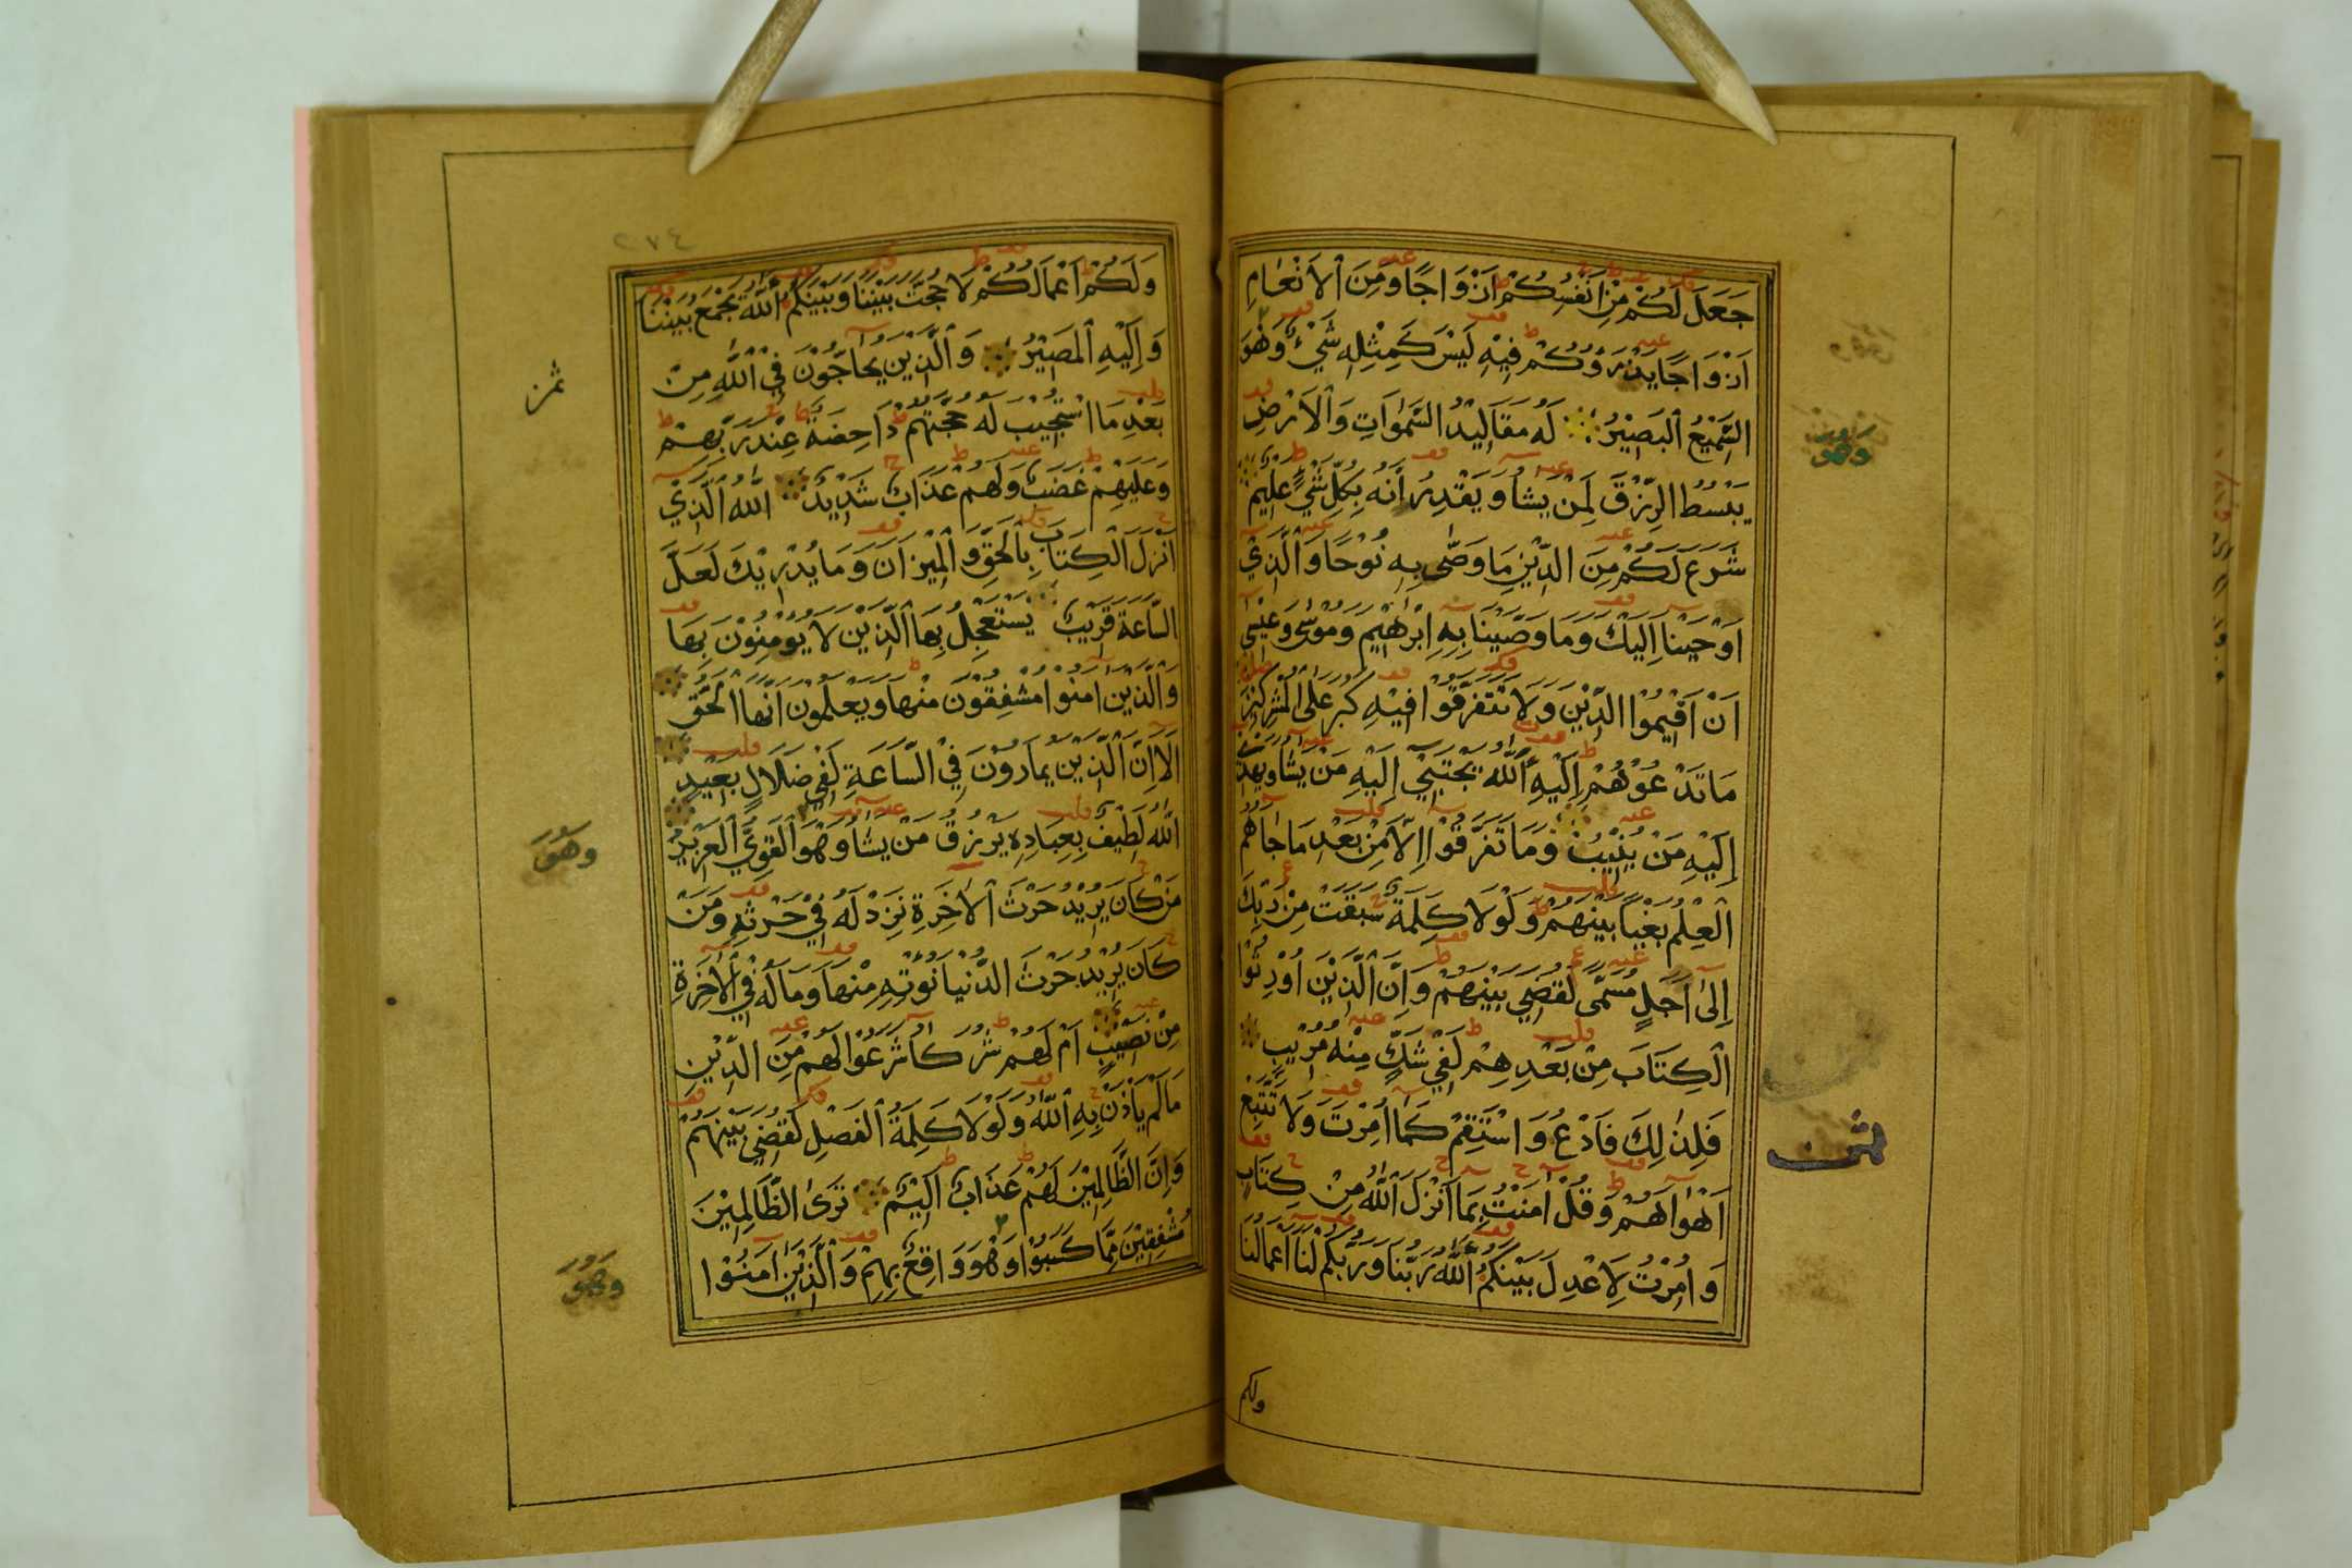 جَعَلَ لَكُمْ مِنْ اَنْفُسِكُمْ اَزْوَاجًا وَمِنَ الْاَنْعَامِ
اَزْوَاجًا يَذْرَؤُكُمْ فِيْهِ لَيْسَ كَمِثْلِهِ شَيْءٌ وَهُوَ
السَّمِيْعُ الْبَصِيْرُ لَهُ مَقَالِيْدُ السَّمٰوَاتِ وَالْاَرْضِ
يَبْسُطُ الرِّزْقَ لِمَنْ يَشَاُ وَيَقْدِرُ اِنَّهُ بِكُلِّ شَيْءٍ عَلِيْمٌ
شَرَعَ لَكُمْ مِنَ الدِّيْنِ مَا وَصّٰى بِهِ نُوْحًا وَالَّذِيْ
اَوْحَيْنَا اِلَيْكَ وَمَا وَصَّيْنَا بِهِ اِبْرٰهِيْمَ وَمُوْسٰى وَعِيْسٰى
اَنْ اَقِيْمُوا الدِّيْنَ وَلَا تَتَفَرَّقُوْا فِيْهِ كَبُرَ عَلَى الْمُشْرِكِيْنَ
مَا تَدْعُوْهُمْ اِلَيْهِ اَللّٰهُ يَجْتَبِيْ اِلَيْهِ مَنْ يَشَاُ وَيَهْدِيْ
اِلَيْهِ مَنْ يُنِيْبُ وَمَا تَفَرَّقُوْا اِلَّا مِنْ بَعْدِ مَا جَاَهُمُ
الْعِلْمُ بَغْيًا بَيْنَهُمْ وَلَوْلَا كَلِمَةٌ سَبَقَتْ مِنْ رَبِّكَ
اِلٰى اَجَلٍ مُسَمًّى لَقُضِيَ بَيْنَهُمْ وَاِنَّ الَّذِيْنَ اُوْرِثُوا
الْكِتَابَ مِنْ بَعْدِهِمْ لَفِيْ شَكٍّ مِنْهُ مُرِيْبٍ
فَلِذٰلِكَ فَادْعُ وَاسْتَقِمْ كَمَا اُمِرْتَ وَلَا تَتَّبِعْ
اَهْوَاَهُمْ وَقُلْ اٰمَنْتُ بِمَا اَنْزَلَ اللّٰهُ مِنْ كِتَابٍ
وَاُمِرْتُ لِاَعْدِلَ بَيْنَكُمُ اَللّٰهُ رَبُّنَا وَرَبُّكُمْ لَنَا اَعْمَالُنَا
وَهُوَ
ثمن
ولكم
٢٧٤
وَلَكُمْ اَعْمَالُكُمْ لَا حُجَّةَ بَيْنَنَا وَبَيْنَكُمُ اَللّٰهُ يَجْمَعُ بَيْنَنَا
وَاِلَيْهِ الْمَصِيْرُ وَالَّذِيْنَ يُحَاجُّوْنَ فِي اللّٰهِ مِنْ
بَعْدِ مَا اسْتُجِيْبَ لَهُ حُجَّتُهُمْ دَاحِضَةٌ عِنْدَ رَبِّهِمْ
وَعَلَيْهِمْ غَضَبٌ وَلَهُمْ عَذَابٌ شَدِيْدٌ اَللّٰهُ الَّذِيْ
اَنْزَلَ الْكِتَابَ بِالْحَقِّ وَالْمِيْزَانَ وَمَا يُدْرِيْكَ لَعَلَّ
السَّاعَةَ قَرِيْبٌ يَسْتَعْجِلُ بِهَا الَّذِيْنَ لَا يُؤْمِنُوْنَ بِهَا
وَالَّذِيْنَ اٰمَنُوْا مُشْفِقُوْنَ مِنْهَا وَيَعْلَمُوْنَ اَنَّهَا الْحَقُّ
اَلَا اِنَّ الَّذِيْنَ يُمَارُوْنَ فِي السَّاعَةِ لَفِيْ ضَلَالٍ بَعِيْدٍ
اَللّٰهُ لَطِيْفٌ بِعِبَادِهِ يَرْزُقُ مَنْ يَشَاُ وَهُوَ الْقَوِيُّ الْعَزِيْزُ
مَنْ كَانَ يُرِيْدُ حَرْثَ الْاٰخِرَةِ نَزِدْ لَهُ فِيْ حَرْثِهِ وَمَنْ
كَانَ يُرِيْدُ حَرْثَ الدُّنْيَا نُؤْتِهِ مِنْهَا وَمَا لَهُ فِي الْاٰخِرَةِ
مِنْ نَصِيْبٍ اَمْ لَهُمْ شُرَكَاُ شَرَعُوْا لَهُمْ مِنَ الدِّيْنِ
مَا لَمْ يَاْذَنْ بِهِ اللّٰهُ وَلَوْلَا كَلِمَةُ الْفَصْلِ لَقُضِيَ بَيْنَهُمْ
وَاِنَّ الظَّالِمِيْنَ لَهُمْ عَذَابٌ اَلِيْمٌ تَرَى الظَّالِمِيْنَ
مُشْفِقِيْنَ مِمَّا كَسَبُوْا وَهُوَ وَاقِعٌ بِهِمْ وَالَّذِيْنَ اٰمَنُوْا
ثمن
وَهُوَ
وَهُوَ